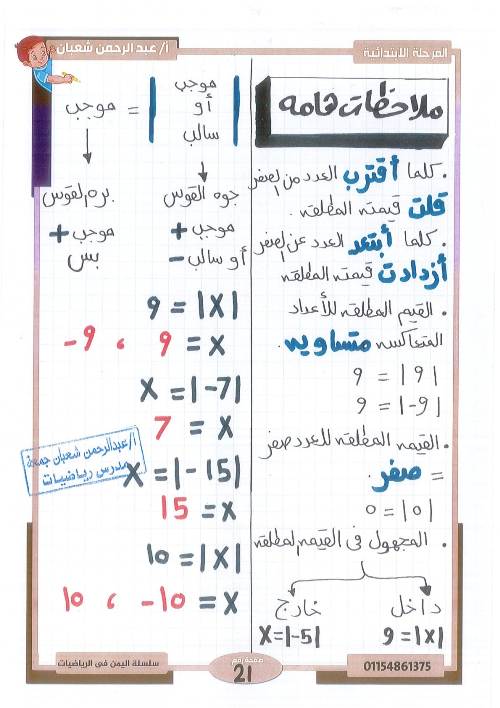 المرحلة الابتدائية
أ/ عبد الرحمن شعبان
ملاحظات هامه
. كلما أقترب العدد من الصفر
قلت قيمته المطلقه .
. كلما أبتعد العدد عن الصفر
أزدادت قيمته المطلقه
. القيم المطلقه للأعداد
المتعاكسه متساويه .
|9| = 9
|-9| = 9
. القيمه المطلقه للعدد صفر
= صفر .
|0| = 0
. المجهول فى القيمه المطلقه
داخل
خارج
|x| = 9
X=|-5|
|موجب أو سالب| = موجب
جوه القوس
موجب +
أو سالب -
بره القوس
موجب +
بس
|X| = 9
X = 9 ، -9
X = |-7|
X = 7
X = |-15|
X = 15
|X| = 10
X = -10 ، 10
أ/عبدالرحمن شعبان جمعة
مدرس رياضيات
01154861375
صفحة رقم
21
سلسلة اليمن فى الرياضيات